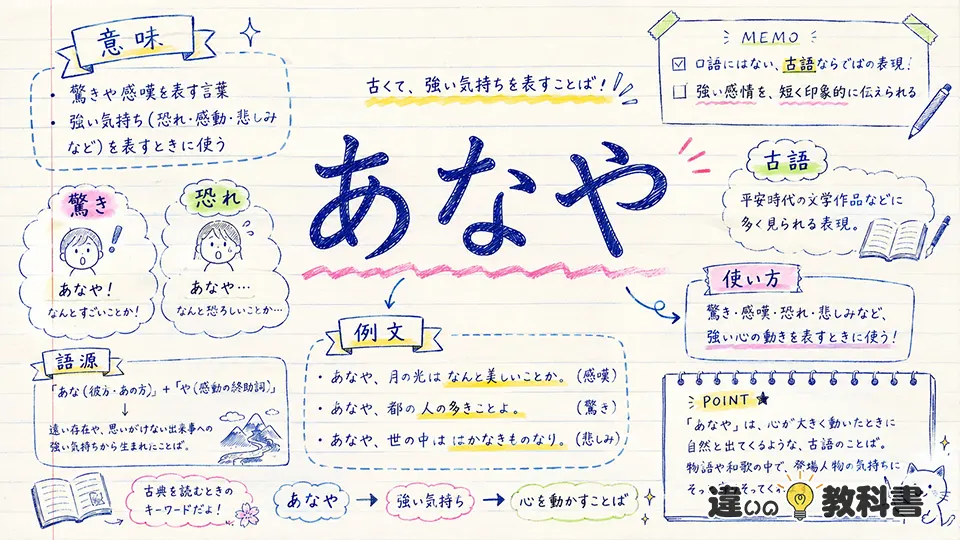 意味
・驚きや感嘆を表す言葉
・強い気持ち(恐れ・感動・悲しみ
など)を表すときに使う
古くて、強い気持ちを表すことば!
あなや
MEMO
☑ 口語にはない、古語ならではの表現!
☐ 強い感情を、短く印象的に伝えられる
古語
平安時代の文学作品などに
多く見られる表現。
驚き
あなや!
なんとすごいことか!
恐れ
あなや…
なんと恐ろしいことか…
使い方
驚き・感嘆・恐れ・悲しみなど、
強い心の動きを表すときに使う!
例文
・あなや、月の光は なんと美しいことか。(感嘆)
・あなや、都の人の多きことよ。(驚き)
・あなや、世の中は はかなきものなり。(悲しみ)
語源
「あな(彼方・あの方)」+「や(感動の終助詞)」
↓
遠い存在や、思いがけない出来事への
強い気持ちから生まれたことば。
POINT ★
「あなや」は、心が大きく動いたときに
自然と出てくるような、古語のことば。
物語や和歌の中で、登場人物の気持ちに
古典を読むときの
キーワードだよ!
あなや → 強い気持ち → 心を動かすことば
違いの教科書